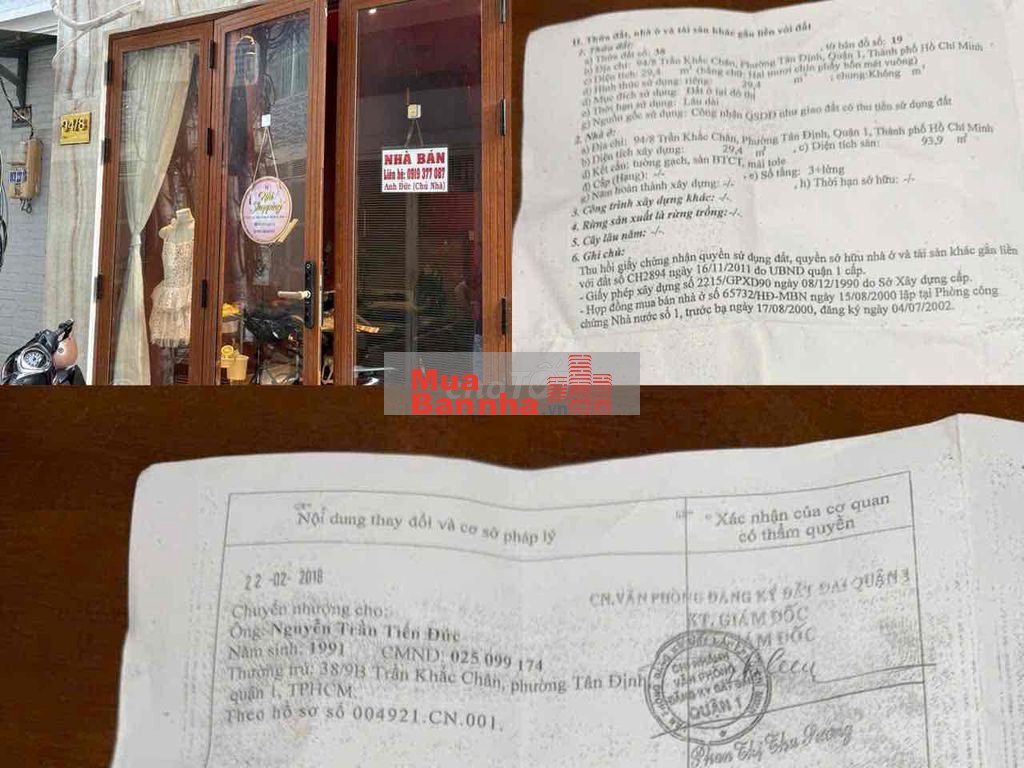 94/8
NHÀ BÁN
Liên hệ: 0919 377 087
Anh Đức (Chủ Nhà)
II. Thửa đất, nhà ở và tài sản khác gắn liền với đất
1. Thửa đất:
a) Thửa đất số: 38 , tờ bản đồ số: 19
b) Địa chỉ: 94/8 Trần Khắc Chân, Phường Tân Định, Quận 1, Thành phố Hồ Chí Minh
c) Diện tích: 29,4 m² (bằng chữ: Hai mươi chín phẩy bốn mét vuông)
d) Hình thức sử dụng: riêng: 29,4 m² , chung:Không m²
đ) Mục đích sử dụng: Đất ở tại đô thị
e) Thời hạn sử dụng: Lâu dài
g) Nguồn gốc sử dụng: Công nhận QSDĐ như giao đất có thu tiền sử dụng đất
2. Nhà ở:
a) Địa chỉ: 94/8 Trần Khắc Chân, Phường Tân Định, Quận 1, Thành phố Hồ Chí Minh
b) Diện tích xây dựng: 29,4 m² , c) Diện tích sàn: 93,9 m²
d) Kết cấu: tường gạch, sàn BTCT, mái tole
đ) Cấp (Hạng): -/- , e) Số tầng: 3+lửng
g) Năm hoàn thành xây dựng: -/- , h) Thời hạn sở hữu: -/-
3. Công trình xây dựng khác: -/-
4. Rừng sản xuất là rừng trồng:-/-
5. Cây lâu năm: -/-
6. Ghi chú:
Thu hồi giấy chứng nhận quyền sử dụng đất, quyền sở hữu nhà ở và tài sản khác gắn liền
với đất số CH2894 ngày 16/11/2011 do UBND quận 1 cấp.
- Giấy phép xây dựng số 2215/GPXD90 ngày 08/12/1990 do Sở Xây dựng cấp.
- Hợp đồng mua bán nhà ở số 65732/HĐ-MBN ngày 15/08/2000 lập tại Phòng công
chứng Nhà nước số 1, trước bạ ngày 17/08/2000, đăng ký ngày 04/07/2002.
Mua
Bannha.vn
Nội dung thay đổi và cơ sở pháp lý
Xác nhận của cơ quan
có thẩm quyền
22 -02- 2018
Chuyển nhượng cho:
Ông: Nguyễn Trần Tiến Đức
Năm sinh: 1991 CMND: 025 099 174
Thường trú: 38/9B Trần Khắc Chân, phường Tân Định,
quận 1, TPHCM.
Theo hồ sơ số 004921.CN.001.
CN.VĂN PHÒNG ĐĂNG KÝ ĐẤT ĐAI QUẬN 1
KT. GIÁM ĐỐC
GIÁM ĐỐC
CHI NHÁNH
VĂN PHÒNG
ĐĂNG KÝ ĐẤT ĐAI
QUẬN 1
Phan Thị Thu Sương